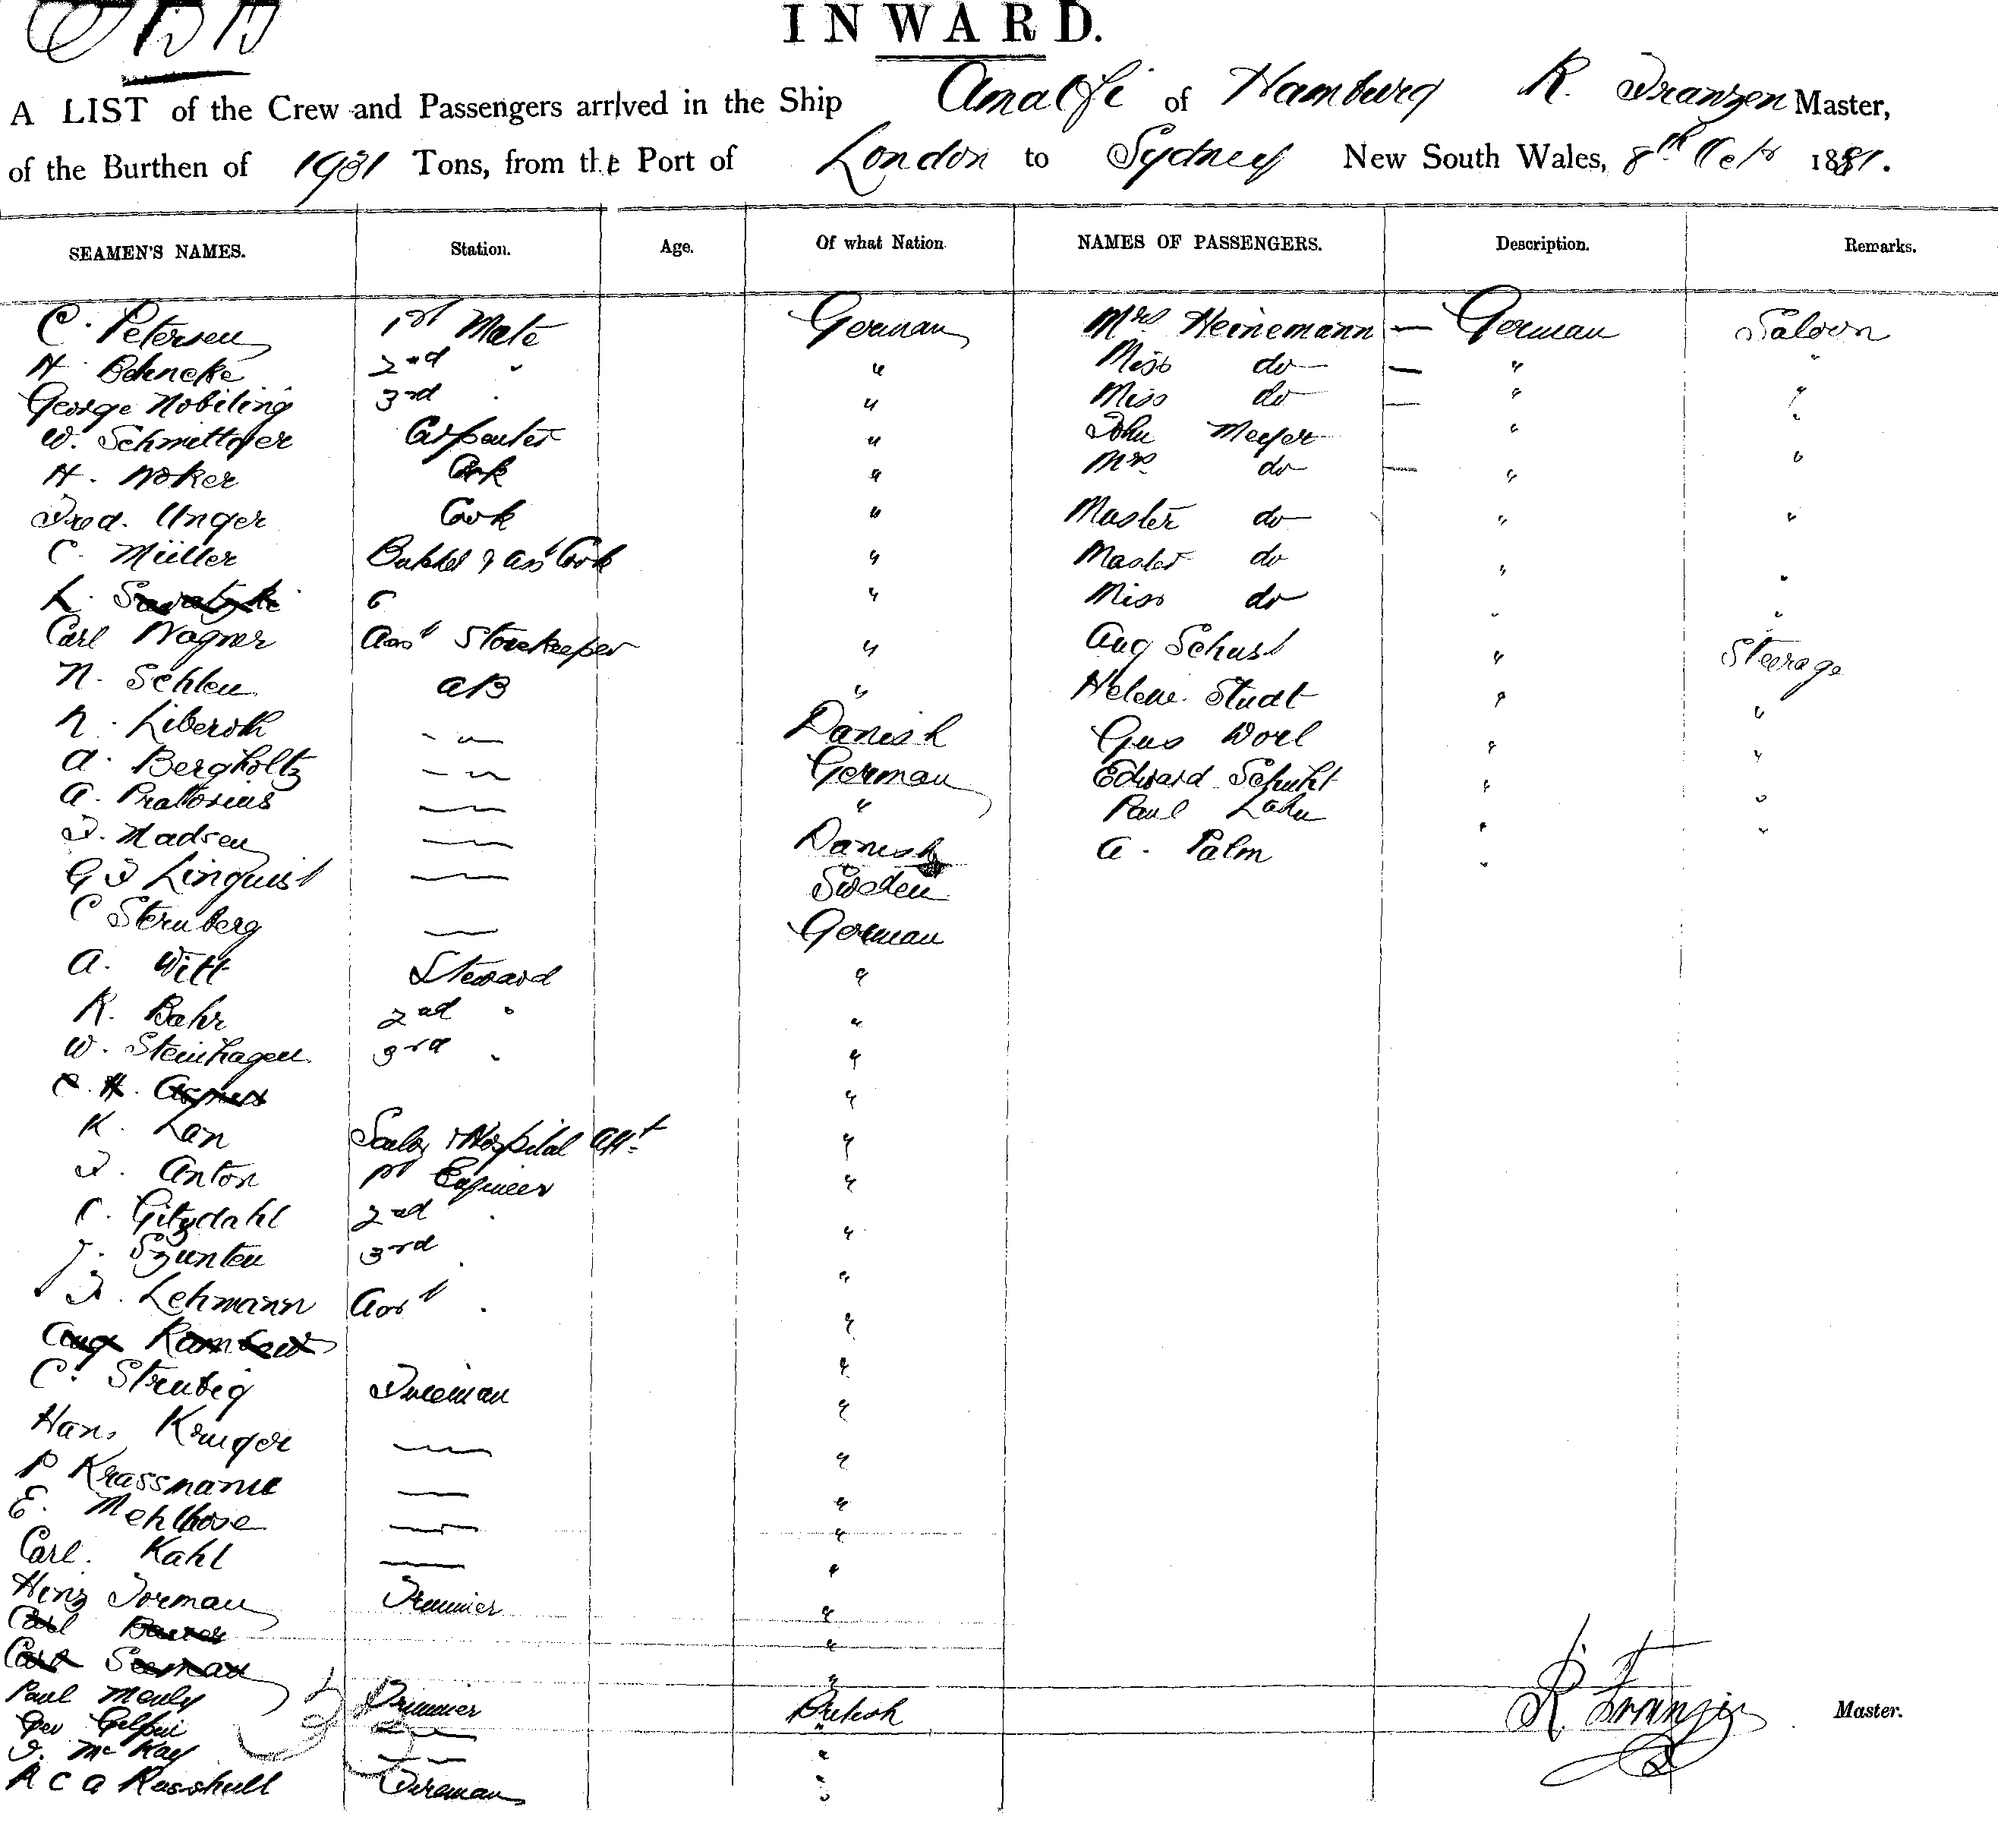 INWARD.
A LIST of the Crew and Passengers arrived in the Ship Amalfi of Hamburg R. Franzen Master,
of the Burthen of 1981 Tons, from the Port of London to Sydney New South Wales, 8th Octr 1881.
SEAMEN'S NAMES. Station. Age. Of what Nation NAMES OF PASSENGERS. Description. Remarks.
C. Petersen 1st Mate German Mrs Heinemann — German Saloon
H. 2nd " " Miss do — " "
George Nobiling 3rd " " Miss do — " "
W. Carpenter " John Meyer " "
H. Noker " Mrs do — " "
Fred. Unger Cook " Master do " "
C. Müller & asst Cook " Master do " "
L. " Miss do " "
Carl Wagner Asst Storekeeper " Aug Schust " Steerage
N. Schleu AB " Helene Studt " "
N. Liberoth " Danish Gus Worl " "
A. Bergholtz " German Edward Schuht " "
A. Pratorius " " Paul Lahn " "
F. Madsen " Danish A. Palm "
G F Linquist " Sweden
C Sternberg " German
A. Witt Steward "
R. Bahr 2nd " "
W. Steinhagen 3rd " "
H. "
K. Lan & Hospital Att "
F. Anton 1st Engineer "
C. Gitzdahl 2nd " "
J. Szunten 3rd " "
F. Lehmann Asst " "
Aug "
C. Strubig Fireman "
Hans Kruger " "
P Krassmann " "
E. Mehlhose " "
Carl. Kahl " "
Hinz Forman Trimmer "
Carl "
Carl Seeman "
Paul Menly Trimmer British R. Franzen Master.
Geo Gilfin " "
J. McKay " "
R C A Fireman "